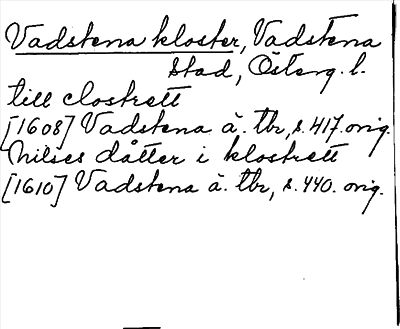 Vadstena kloster, Vadstena
stad, Österg. l.
till clostrett
[1608] Vadstena ä. tbr, s. 417. orig.
Nilses dåtter i klostrett
[1610] Vadstena ä. tbr, s. 440. orig.